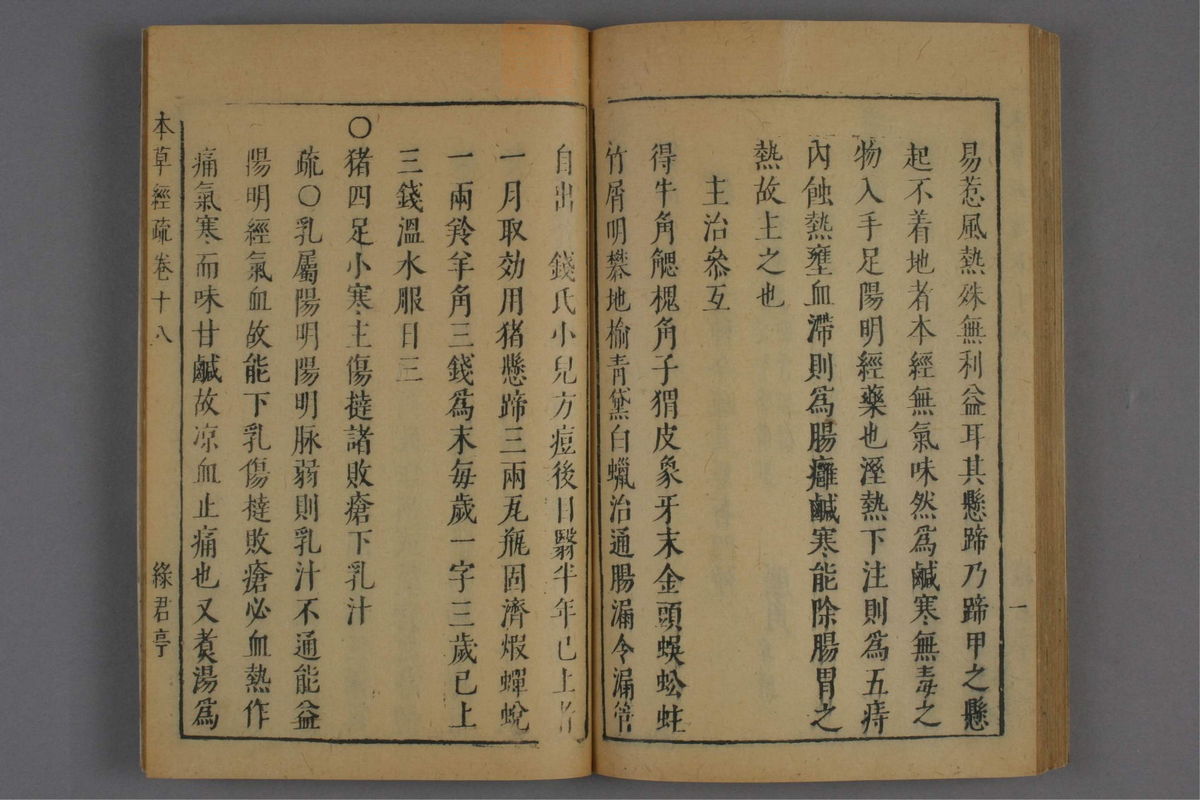 易惹風熱殊無利益耳其懸蹄乃蹄甲之懸
起不着地者本經無氣味然爲鹹寒無毒之
物入手足陽明經藥也溼熱下注則爲五痔
內蝕熱壅血滯則爲腸癰鹹寒能除腸胃之
熱故主之也
主治參互
得牛角䚡槐角子猬皮象牙末金頭蜈蚣蛀
竹屑明礬地榆青黛白蠟治通腸漏令漏管
自出 錢氏小兒方痘後目翳半年已上者
一月取効用猪懸蹄三兩瓦瓶固濟煅蟬蛻
一兩羚羊角三錢爲末每歲一字三歲已上
三錢溫水服日三
〇猪四足小寒主傷撻諸敗瘡下乳汁
疏〇乳屬陽明陽明脉弱則乳汁不通能益
陽明經氣血故能下乳傷撻敗瘡必血熱作
痛氣寒而味甘鹹故凉血止痛也又煑湯爲
本草經疏卷十八 綠君亭